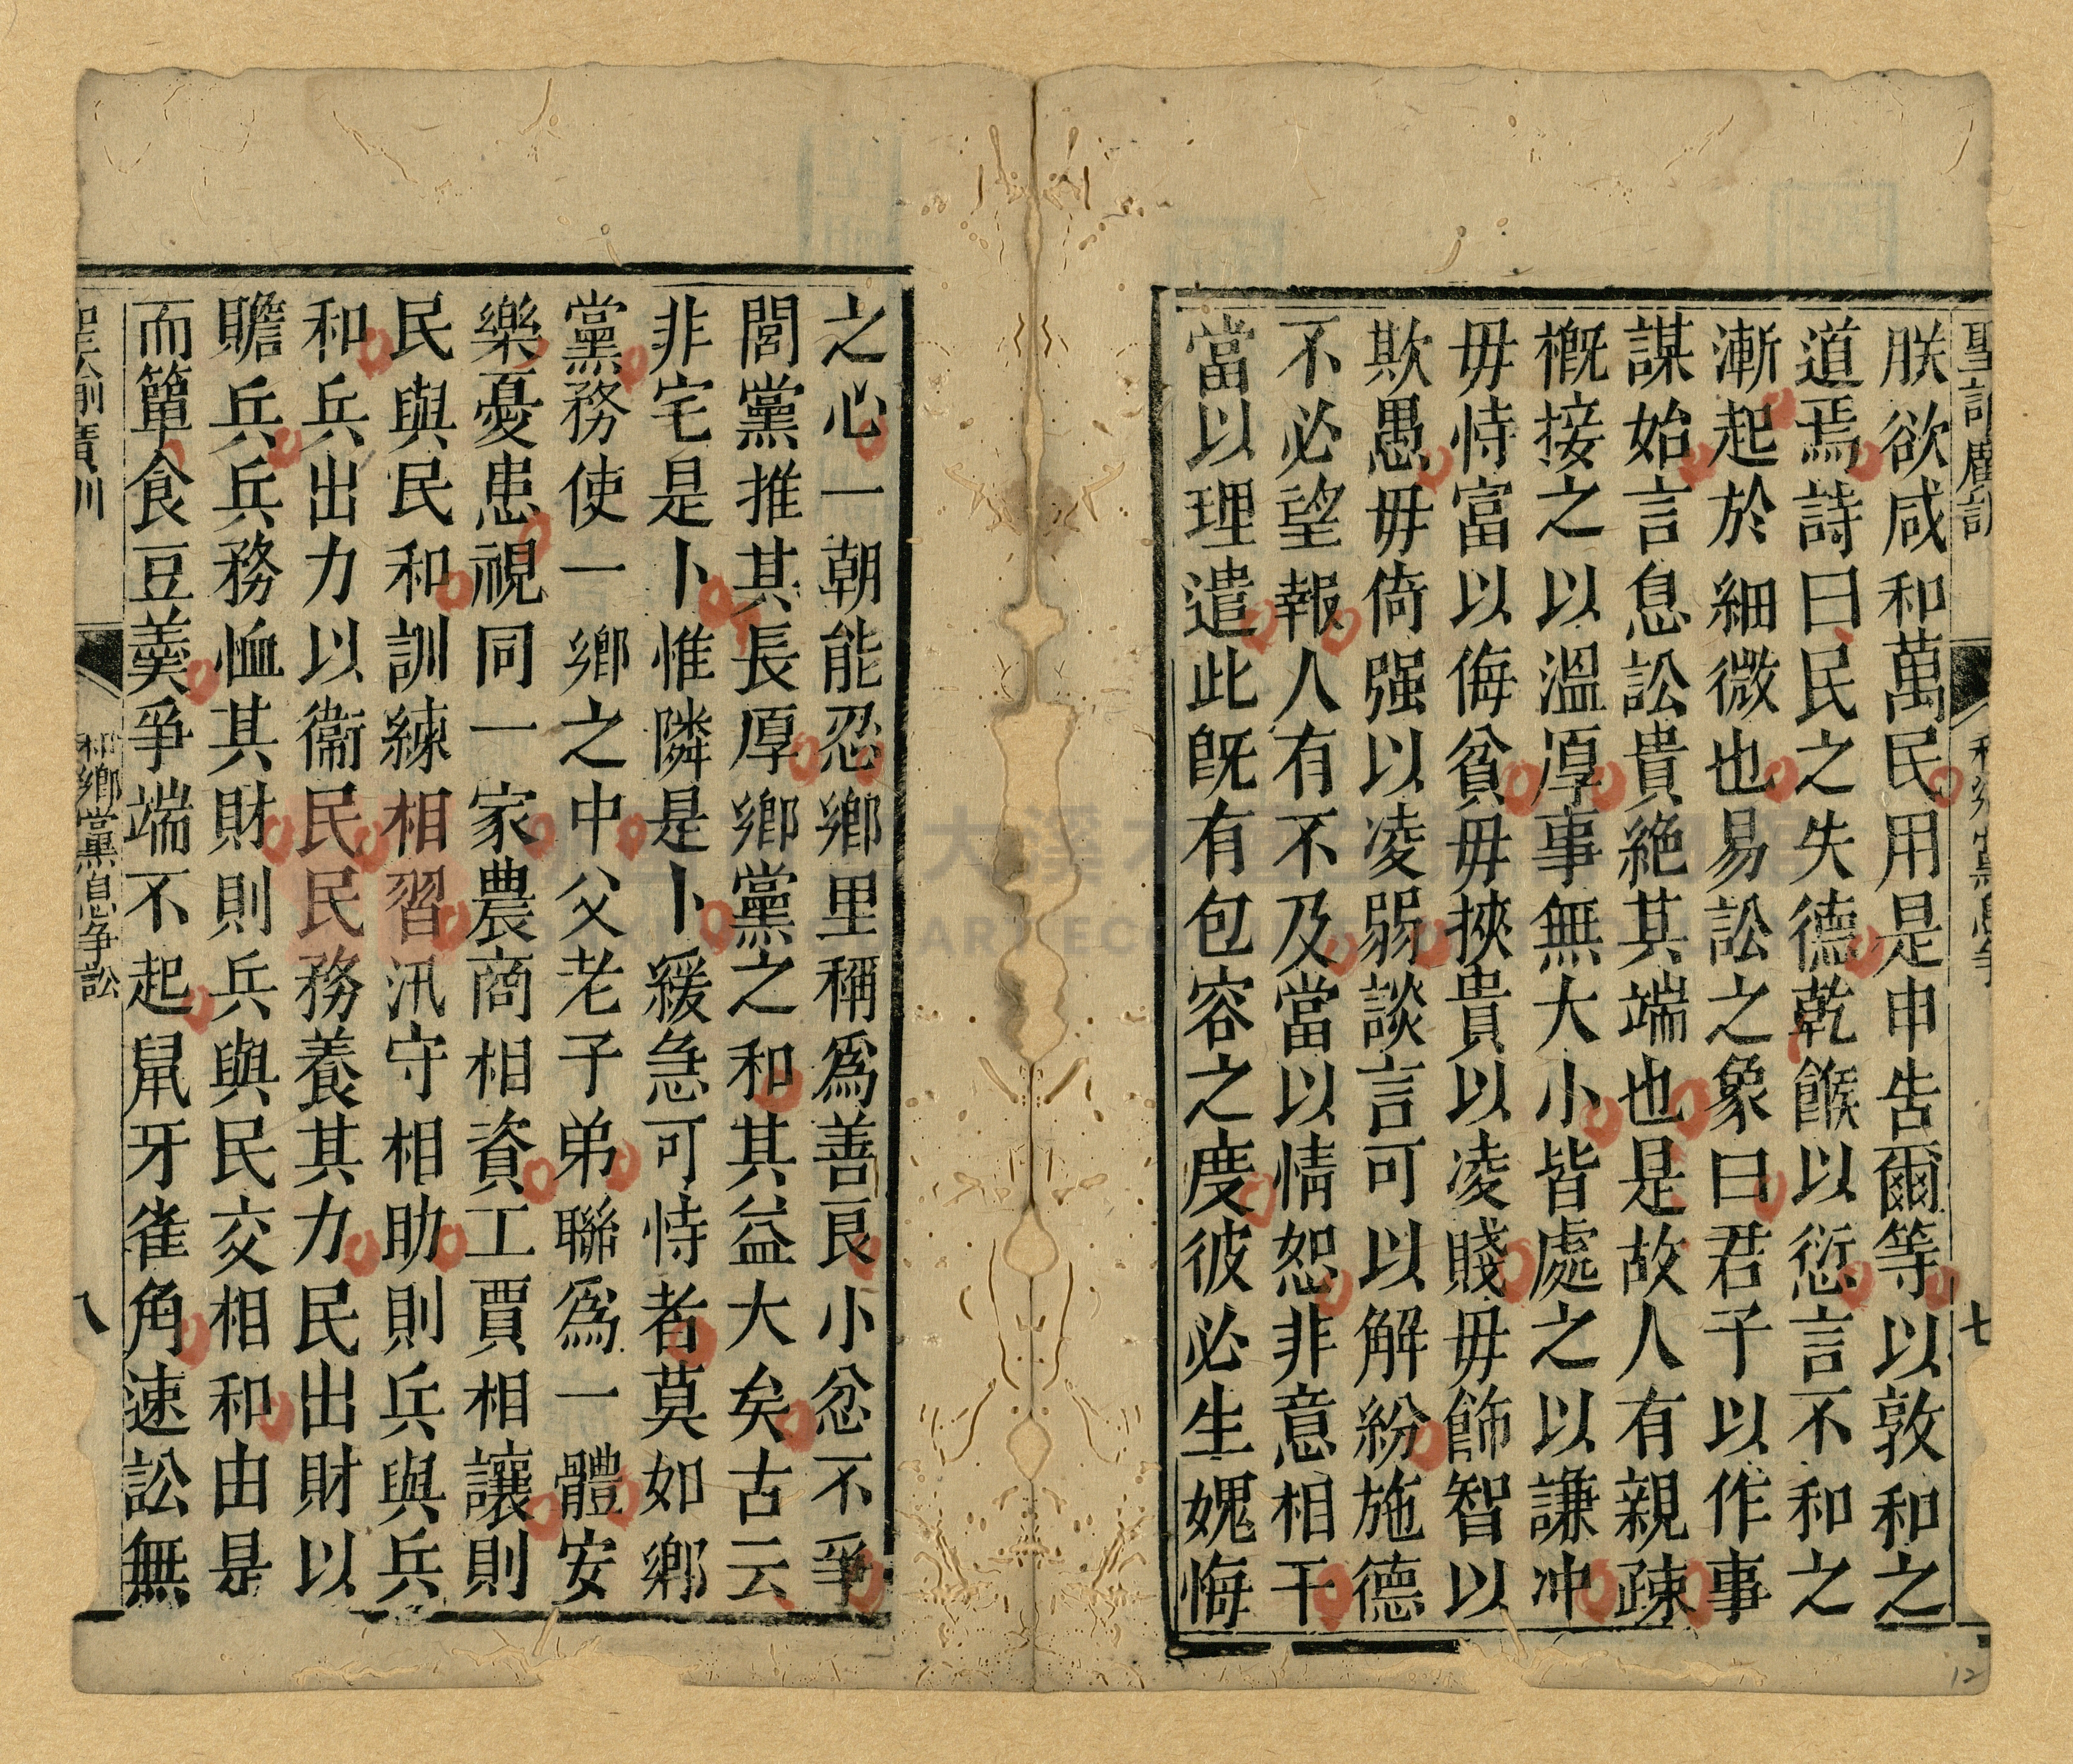 聖諭廣訓
和鄉黨息爭
七
朕欲咸和萬民用是申告爾等以敦和之
道焉詩曰民之失德乾餱以愆言不和之
漸起於細微也易訟之象曰君子以作事
謀始言息訟貴絶其端也是故人有親疎
概接之以溫厚事無大小皆處之以謙冲
毋恃富以侮貧毋挾貴以凌賤毋飾智以
欺愚毋倚强以凌弱談言可以解紛施德
不必望報人有不及當以情恕非意相干
當以理遣此旣有包容之度彼必生媿悔
之心一朝能忍鄉里稱爲善良小忿不爭
閭黨推其長厚鄉黨之和其益大矣古云
非宅是卜惟隣是卜緩急可恃者莫如鄉
黨務使一鄉之中父老子弟聯爲一體安
樂憂患視同一家農商相資工賈相讓則
民與民和訓練相習汛守相助則兵與兵
和兵出力以衞民民務養其力民出財以
贍兵兵務恤其財則兵與民交相和由是
而簞食豆羹爭端不起鼠牙雀角速訟無
聖諭廣訓
和鄉黨息爭訟
八
12